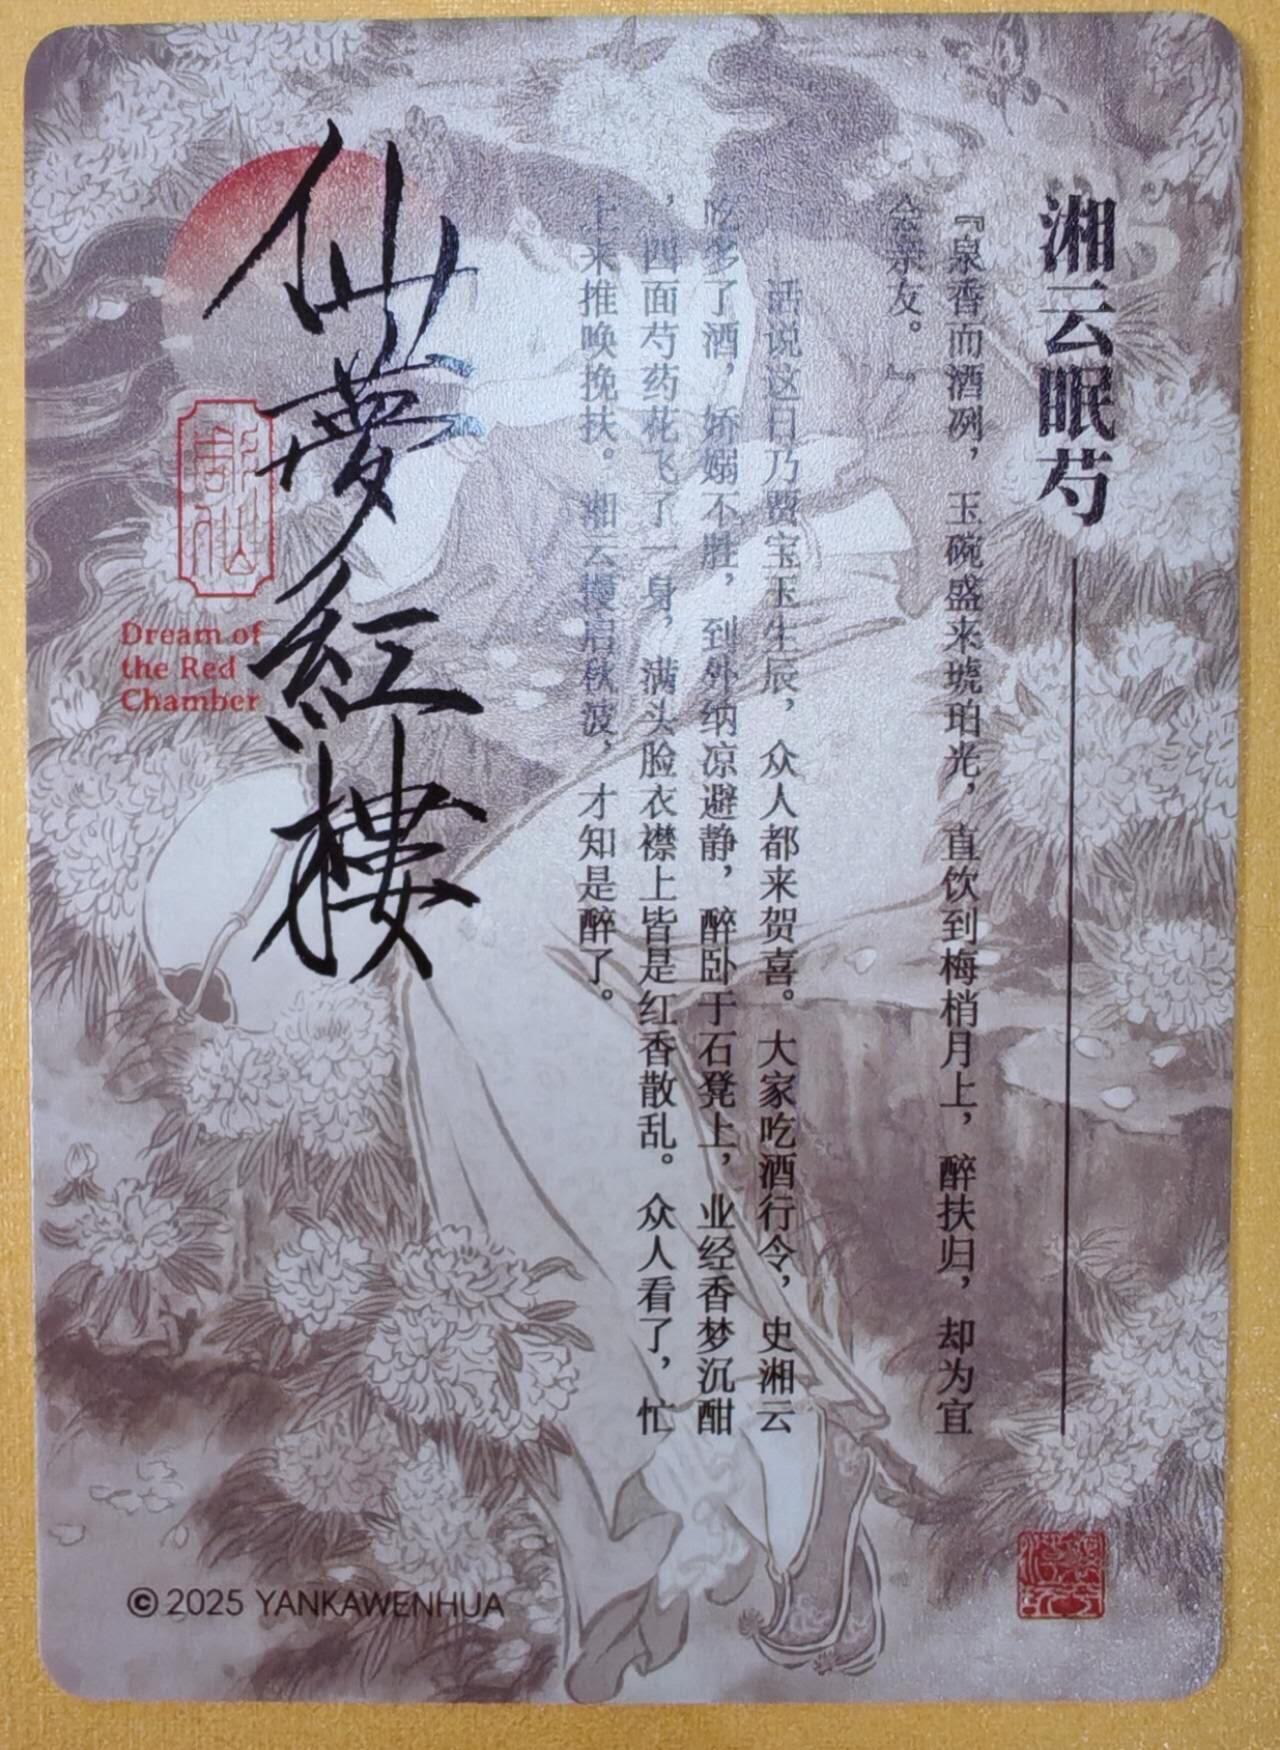 湘云眠芍
『泉香而酒冽，玉碗盛来琥珀光，直饮到梅梢月上，醉扶归，却为宜
会亲友。』
话说这日乃贾宝玉生辰，众人都来贺喜。大家吃酒行令，史湘云
吃多了酒，娇娜不胜，到外纳凉避静，醉卧于石凳上，业经香梦沉酣
，四面芍药花飞了一身，满头脸衣襟上皆是红香散乱。众人看了，忙
上来推唤挽扶。湘云慢启秋波，才知是醉了。
仙夢紅樓
Dream of
the Red
Chamber
© 2025 YANKAWENHUA